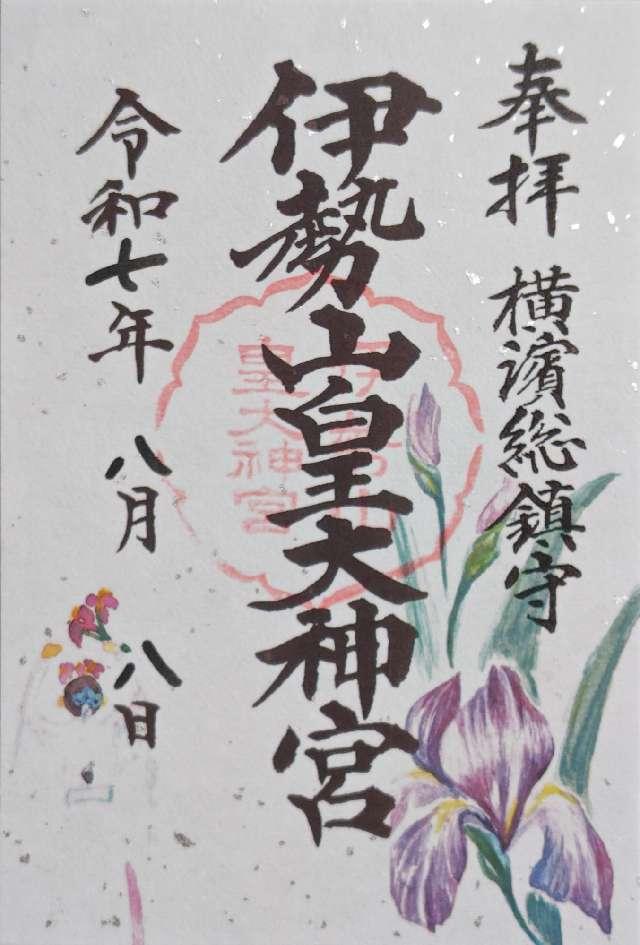 奉拝 横濱総鎮守
伊勢山皇大神宮
令和七年 八月 八日
伊勢山
皇大神宮